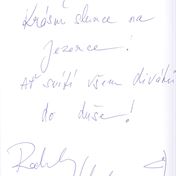 Krásní slunce na
jezence!
Ať svítí všem divákům
do duše!